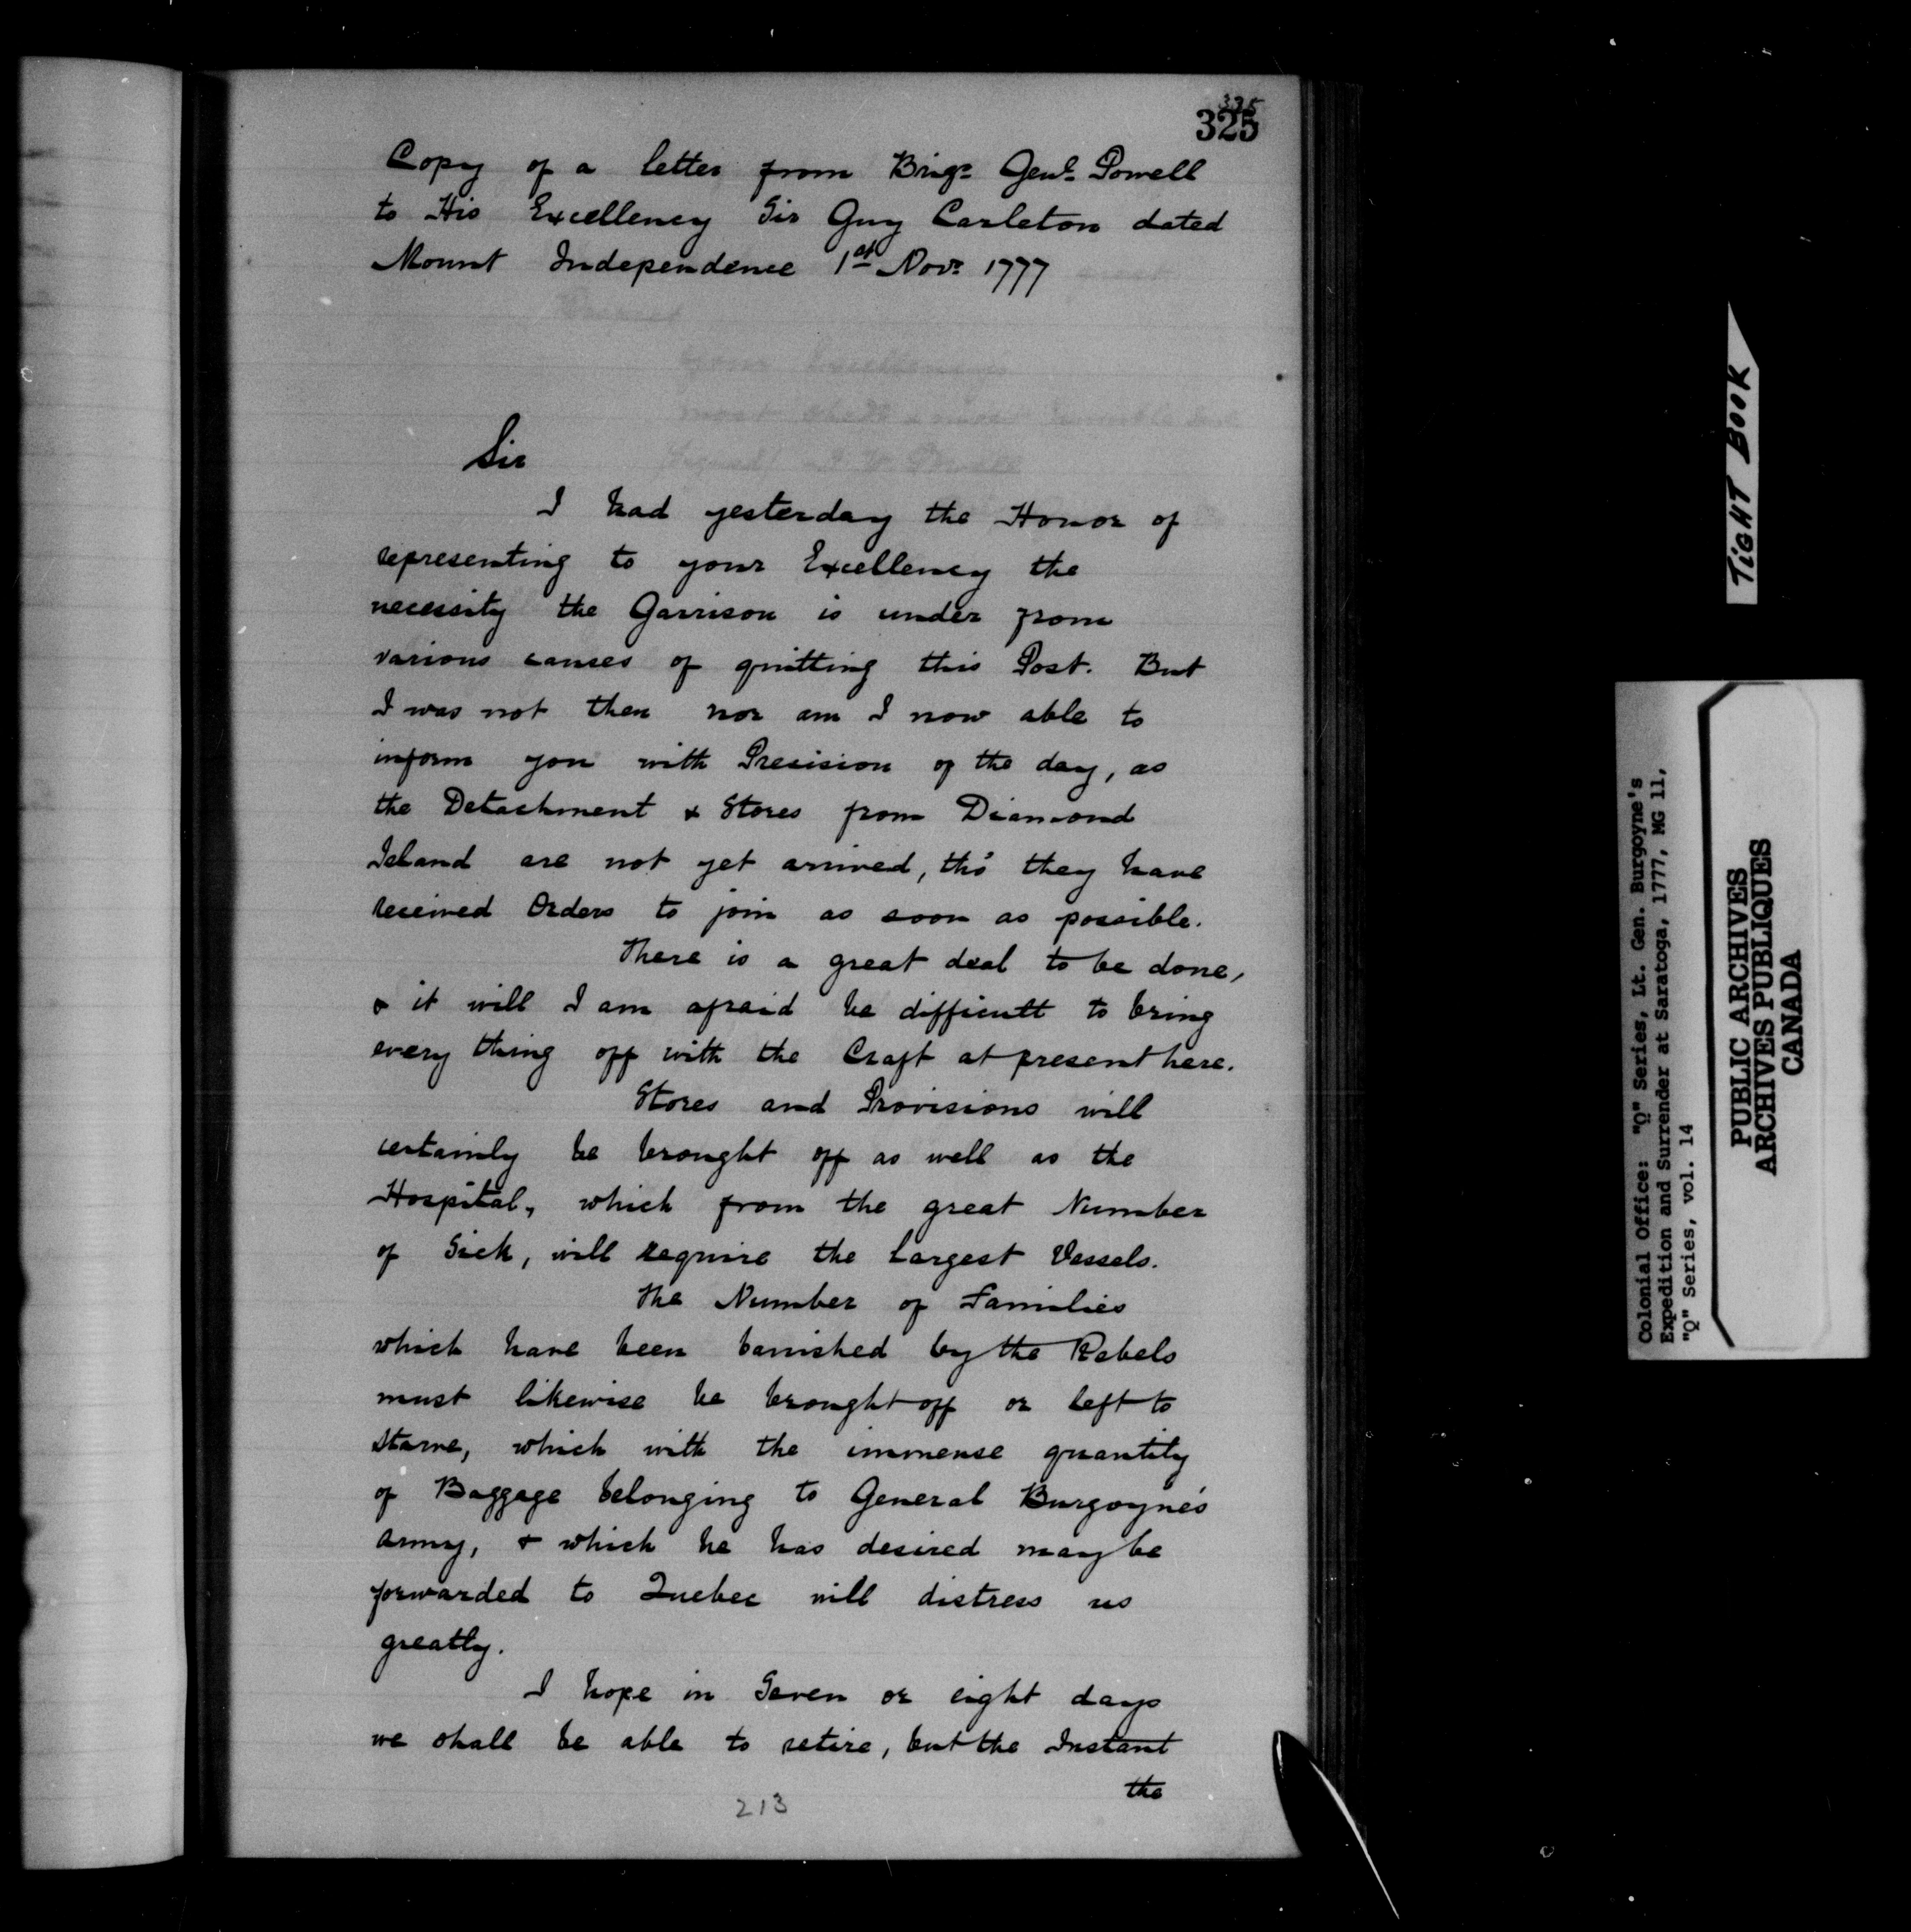 335
325
Copy of a letter from Brigr Genl Powell
to His Excellency Sir Guy Carleton dated
Mount Independence 1st Novr 1777
Sir
I had yesterday the Honor of
representing to your Excellency the
necessity the Garrison is under from
various causes of quitting this Post. But
I was not then nor am I now able to
inform you with Precision of the day, as
the Detachment & Stores from Diamond
Island are not yet arrived, tho' they have
received Orders to join as soon as possible.
There is a great deal to be done,
& it will I am afraid be difficult to bring
every thing off with the Craft at present here.
Stores and Provisions will
certainly be brought off as well as the
Hospital, which from the great Number
of Sick, will require the largest Vessels.
The Number of Families
which have been banished by the Rebels
must likewise be brought off or left to
starve, which with the immense quantity
of Baggage belonging to General Burgoyne's
army, & which he has desired may be
forwarded to Quebec will distress us
greatly.
I hope in Seven or eight days
we shall be able to retire, but the Instant
the
213
TIGHT BOOK
Colonial Office: "Q" Series, Lt. Gen. Burgoyne's
Expedition and Surrender at Saratoga, 1777, MG 11,
"Q" Series, vol. 14
PUBLIC ARCHIVES
ARCHIVES PUBLIQUES
CANADA